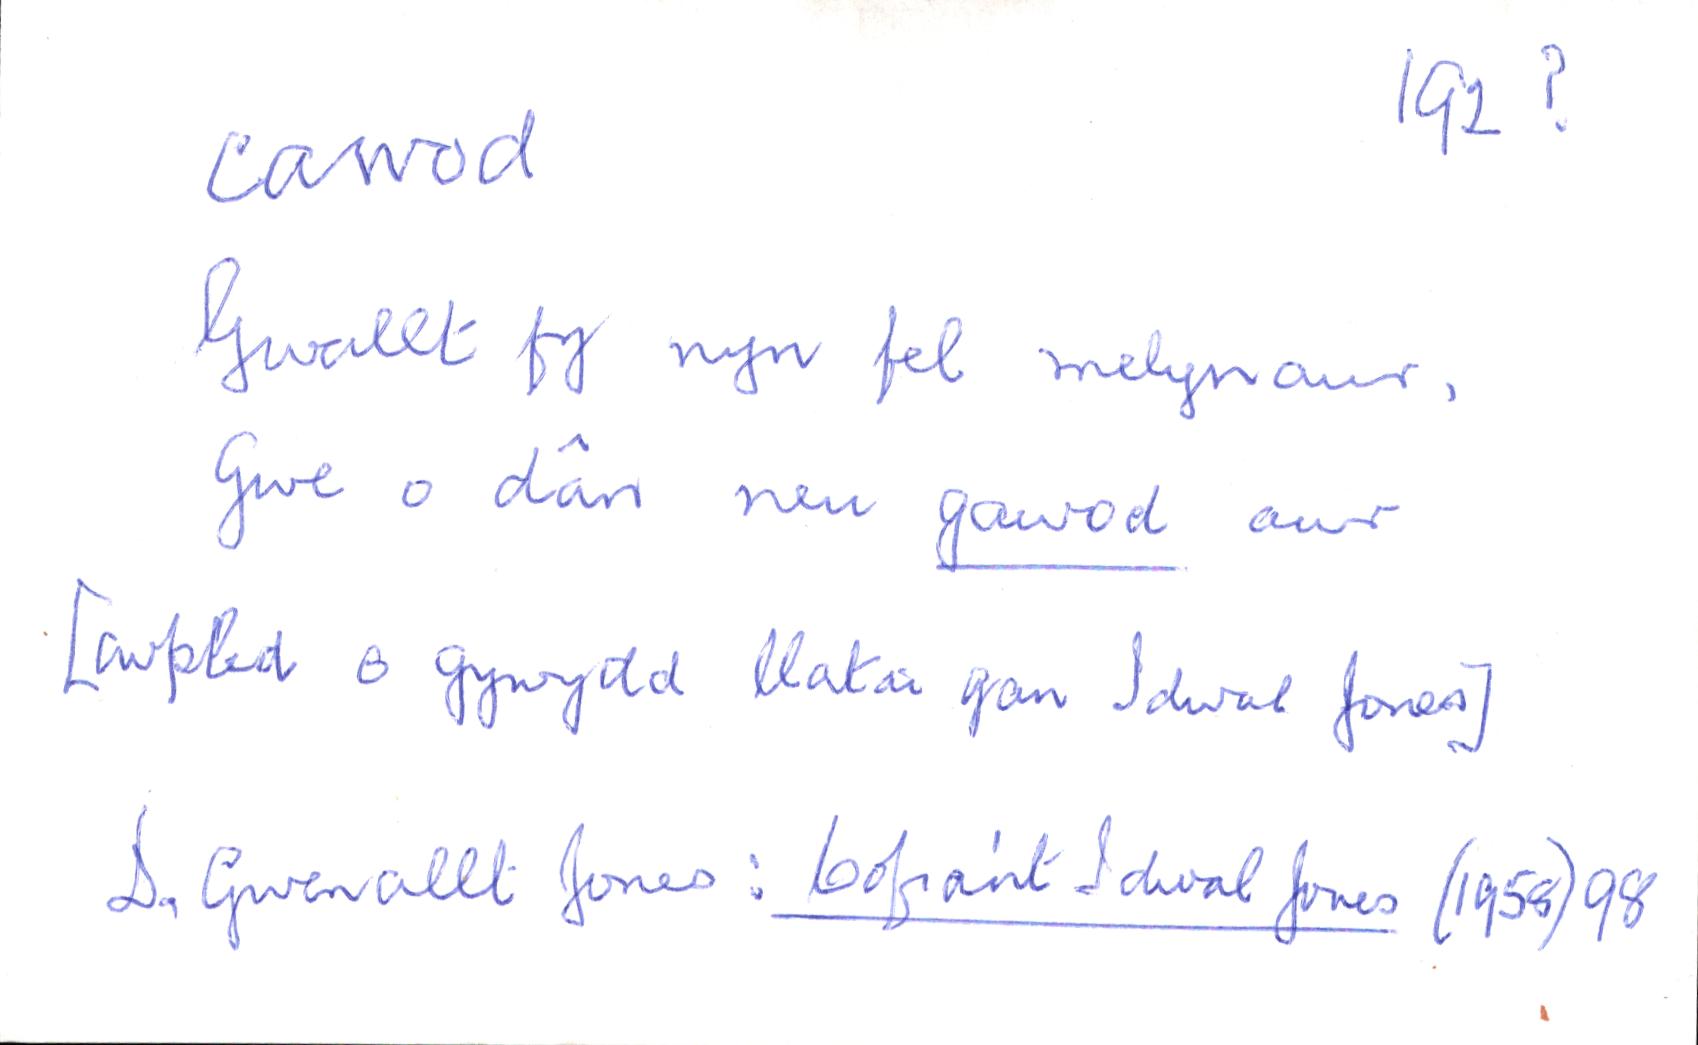 192?
cawod
Gwallt fy nyn fel melynaur,
Gwe o dân neu gawod aur
[cwpled o gywydd llatai gan Idwal Jones]
D. Gwenallt Jones: Cofiant Idwal Jones (1958) 98